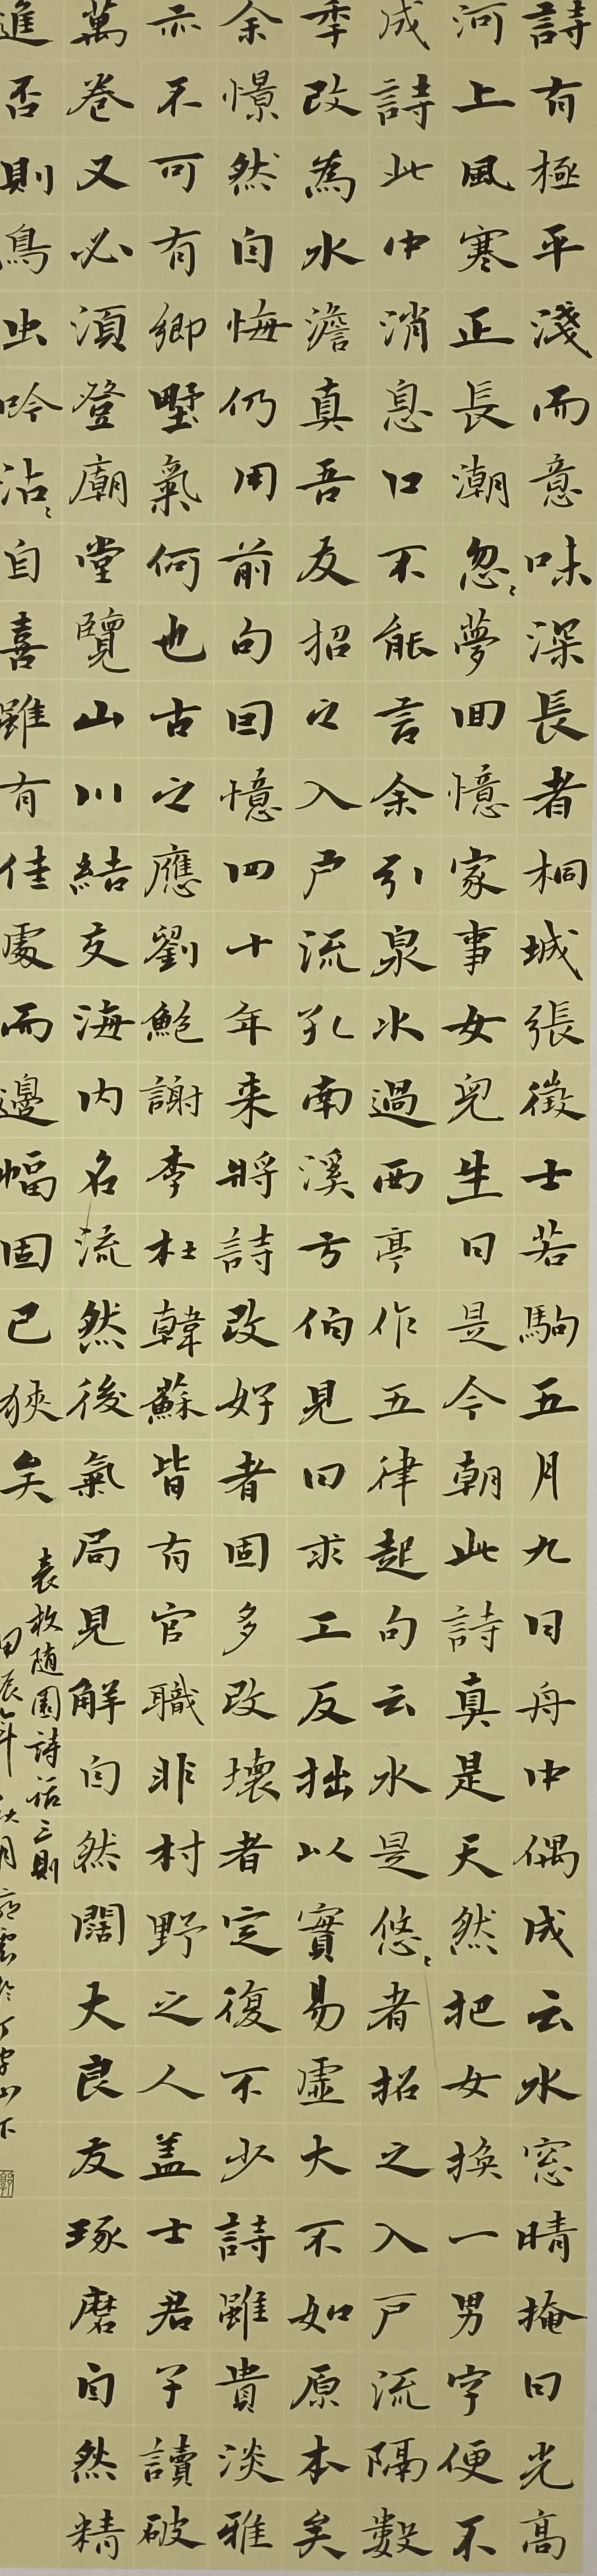 詩有極平淺而意味深長者桐城張徵士若駒五月九日舟中偶成云水窓晴掩日光高
河上風寒正長潮忽〻夢回憶家事女兒生日是今朝此詩真是天然把女換一男字便不
成詩此中消息口不能言余引泉水過西亭作五律起句云水是悠〻者招之入戶流隔數
季改為水澹真吾友招之入戶流孔南溪方伯見曰求工反拙以實易虛大不如原本矣
余憬然自悔仍用前句因憶四十年来將詩改好者固多改壞者定復不少詩雖貴淡雅
亦不可有鄉野氣何也古之應劉鮑謝李杜韓蘇皆有官職非村野之人蓋士君子讀破
萬卷又必須登廟堂覽山川結交海內名流然後氣局見解自然闊大良友琢磨自然精
進否則鳥出吟沾〻自喜雖有佳處而邊幅固已狹矣
袁枚隨園詩話三則
甲辰年秋月